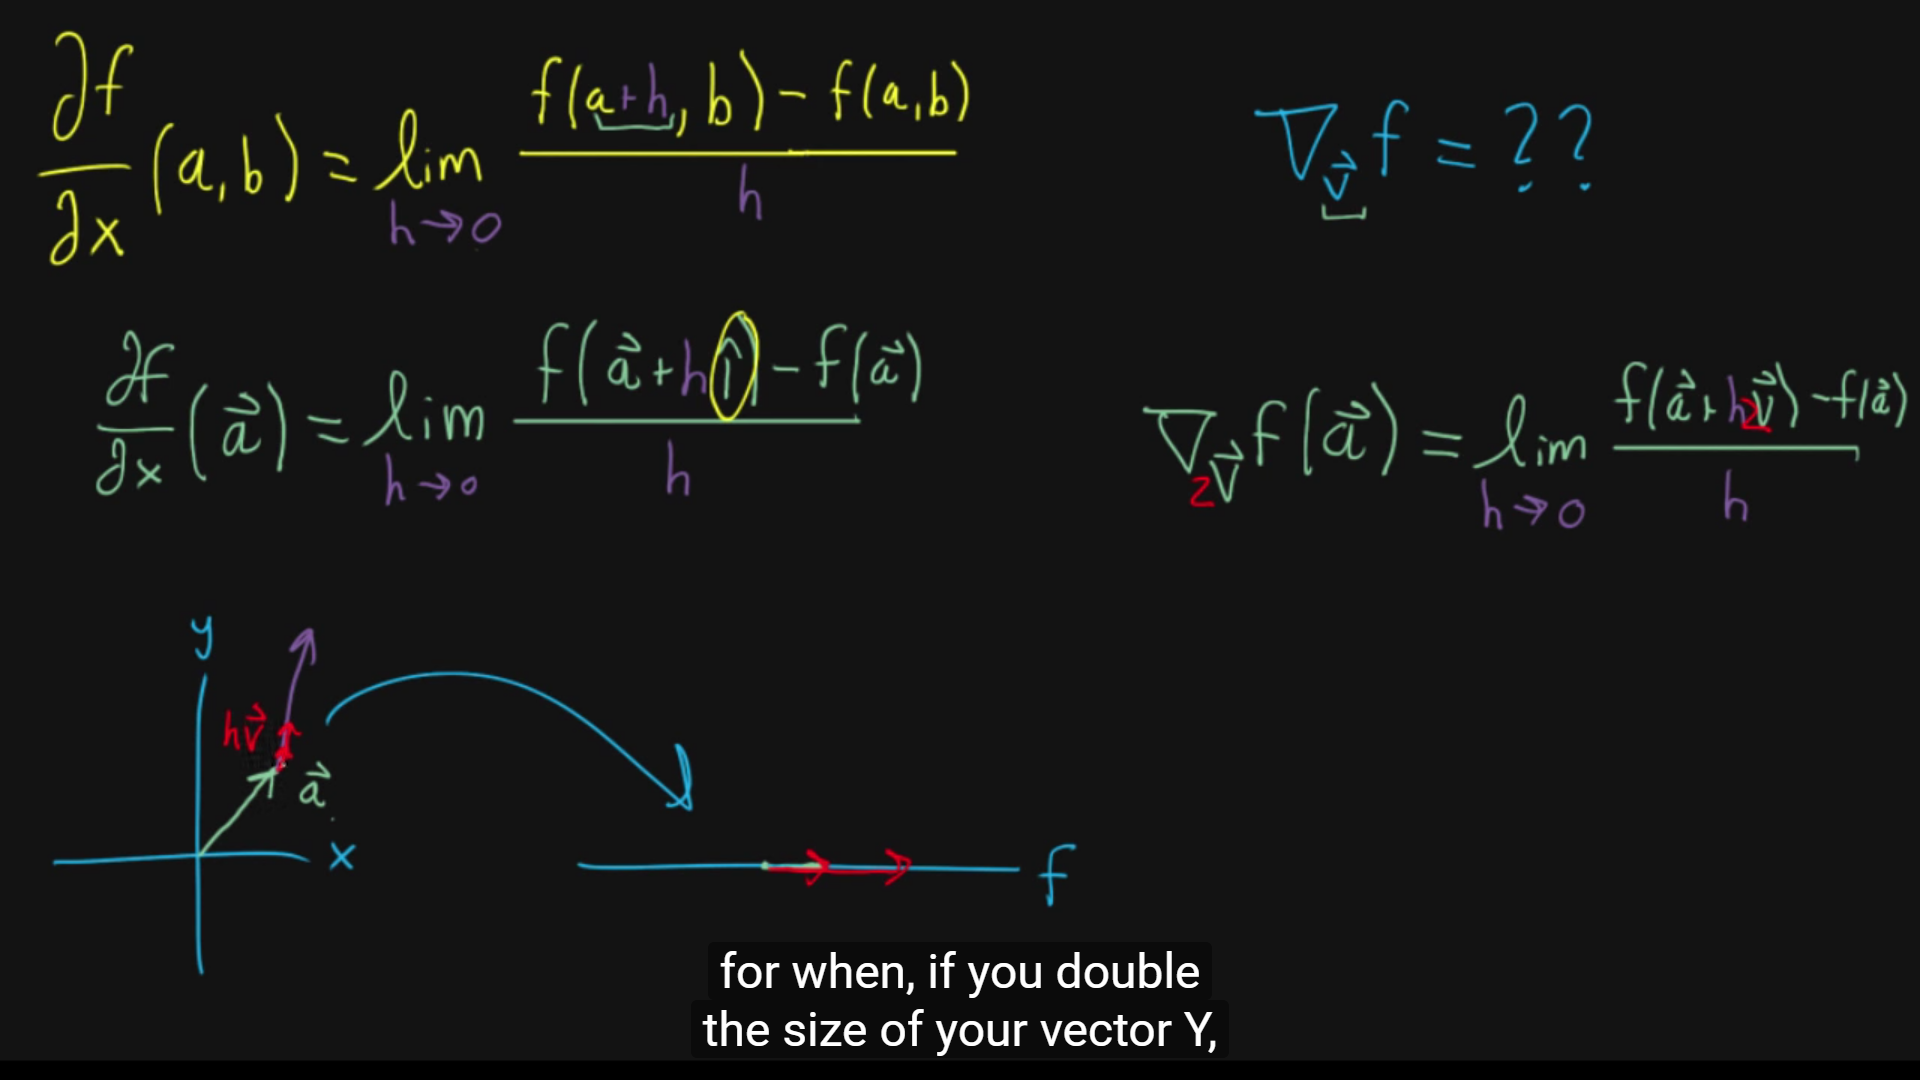 ∂f/∂x (a,b) = lim h→0 f(a+h, b) - f(a,b) / h
∇v⃗ f = ??
∂f/∂x (a⃗) = lim h→0 f(a⃗ + h î) - f(a⃗) / h
∇2v⃗ f(a⃗) = lim h→0 f(a⃗ + h2v⃗) - f(a⃗) / h
y
hv⃗
a⃗
x
f
for when, if you double
the size of your vector Y,